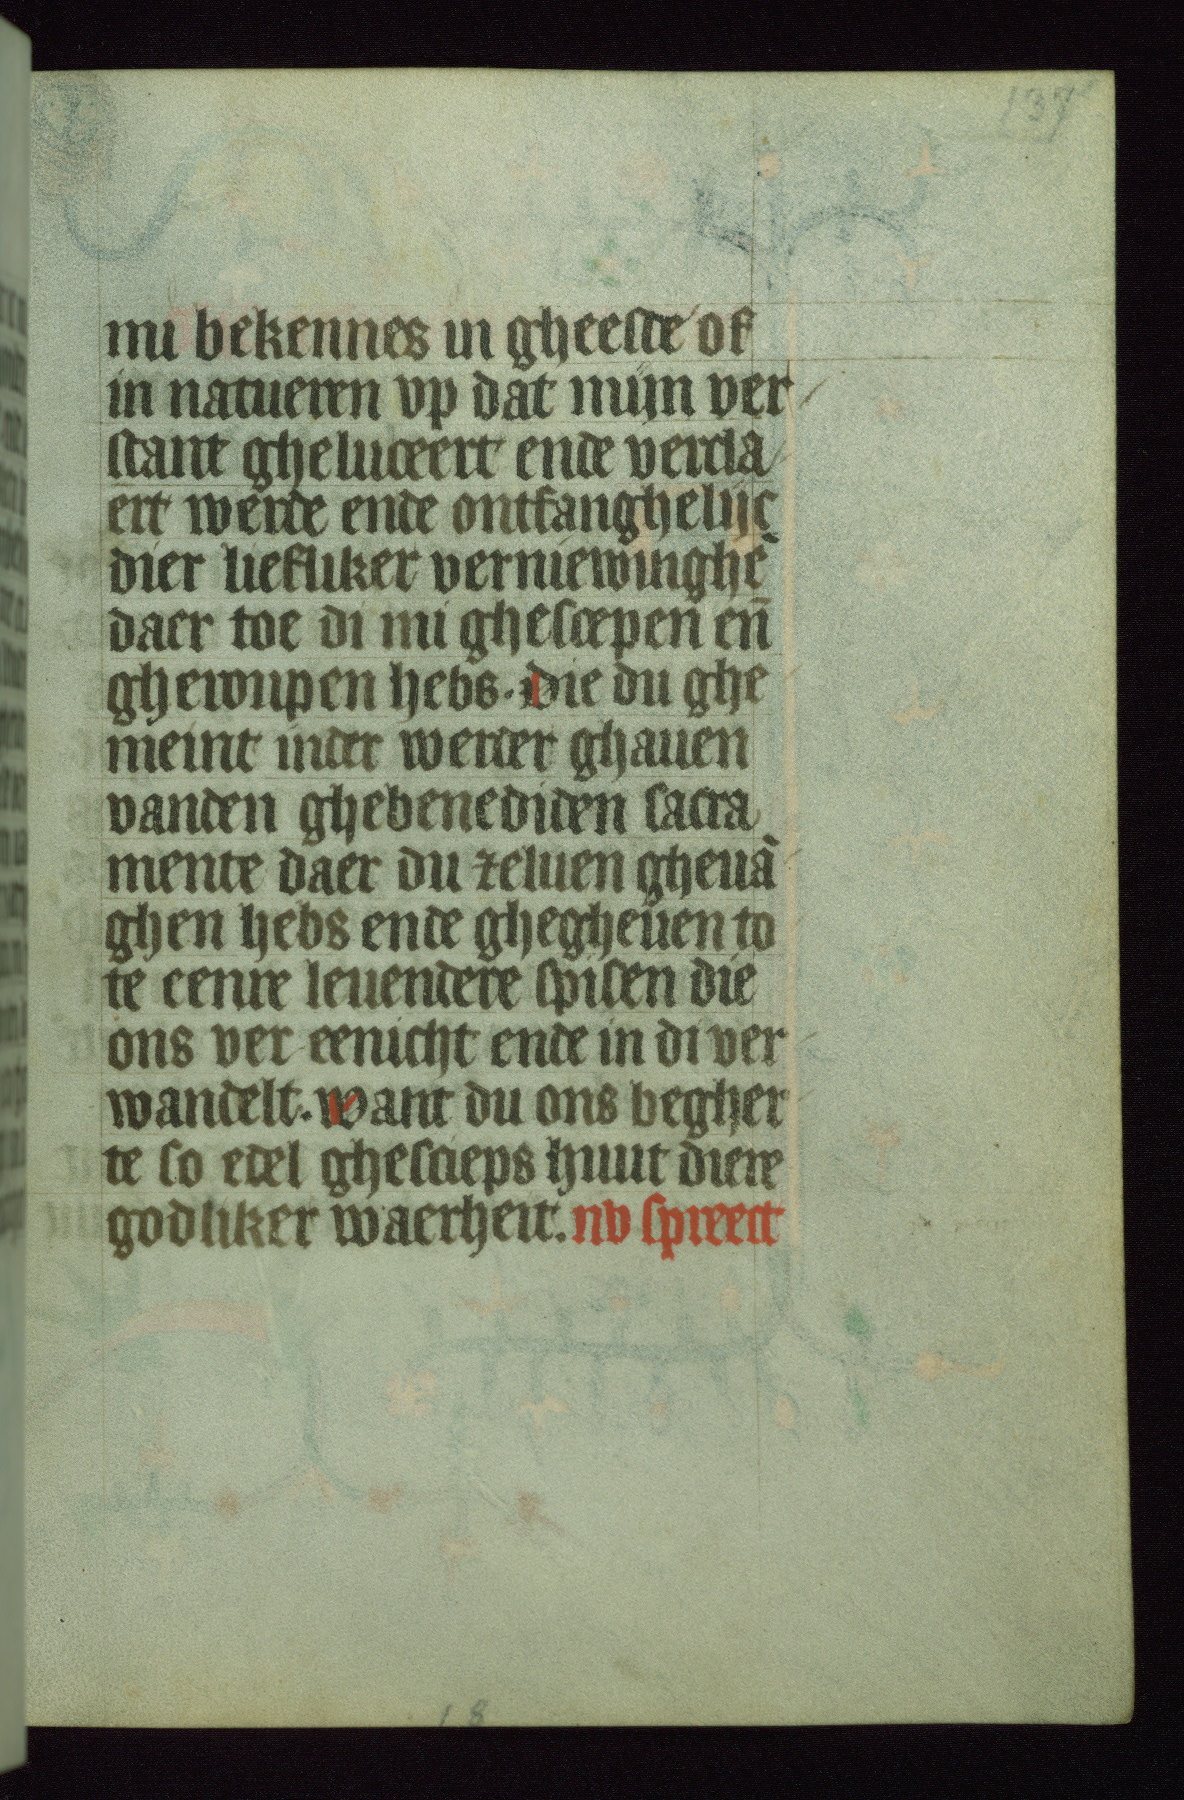 137
mi bekennes in gheeste of
in natueren vp dat mijn ver
stant gheluceert ende vercla
ert werde ende ontfanghelijc
dier liefliker verniewinghē
daer toe di mi ghescepen en̄
ghewrupen hebs. Die du ghe
meint inder werder ghauen
vanden ghebenediden sacra
mente daer du zeluen gheuā
ghen hebs ende ghegheuen to
te eenre leuendere spisen die
ons ver eenicht ende in di ver
wandelt. Want du ons begher
te so edel ghescieps huut diere
godliker waerheit. nv spreect
18